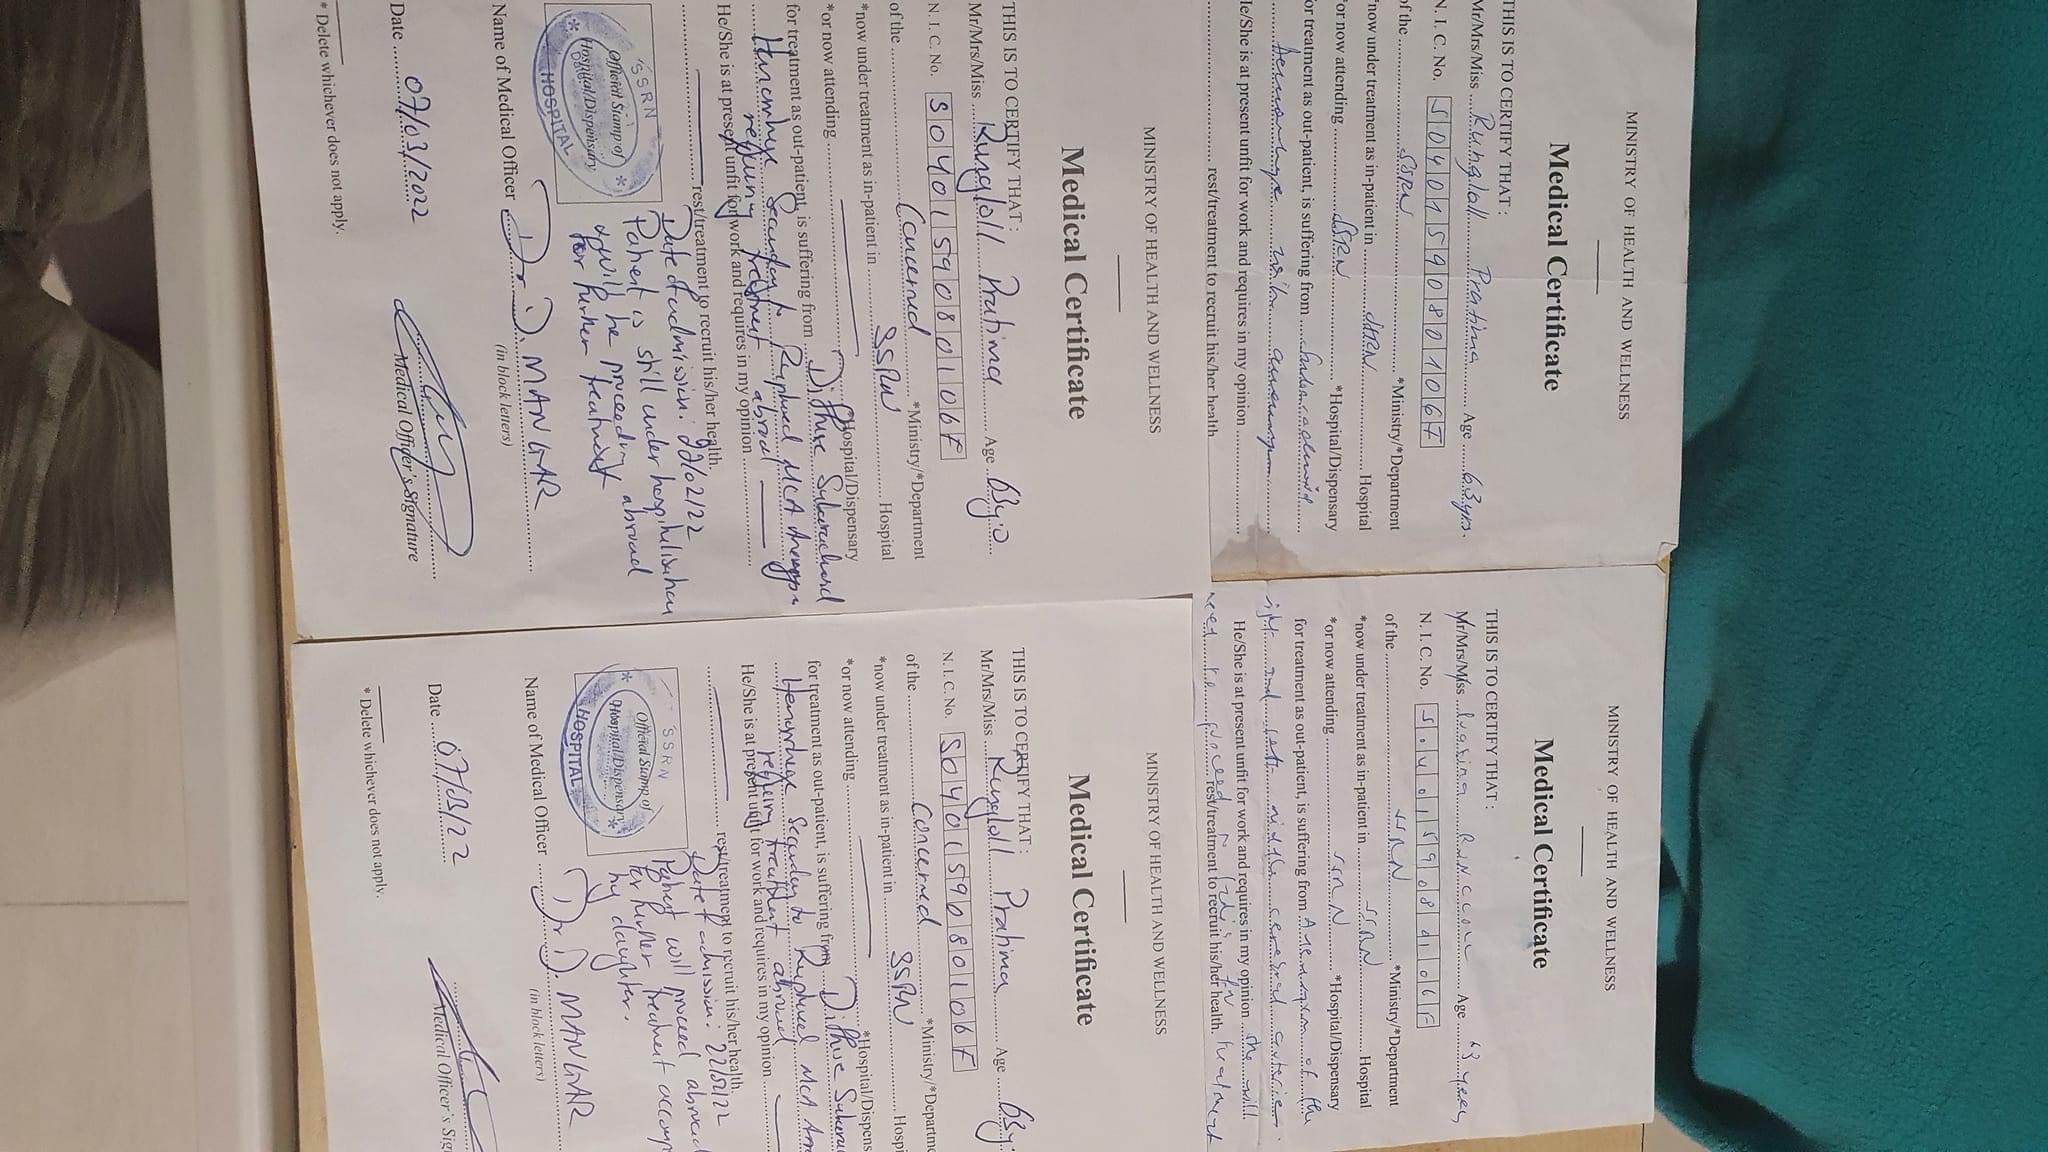 MINISTRY OF HEALTH AND WELLNESS
Medical Certificate
THIS IS TO CERTIFY THAT :
Mr/Mrs/Miss ..... Pratima ..... Age ..... 63 yrs.
N. I. C. No. S0401590801067
of the ..... SSRN ..... *Ministry/*Department
*now under treatment as in-patient in ..... Hospital
*or now attending ..... SSRN ..... *Hospital/Dispensary
for treatment as out-patient, is suffering from ..... Subarachnoid
..... with aneurysm .....
He/She is at present unfit for work and requires in my opinion .....
..... rest/treatment to recruit his/her health
MINISTRY OF HEALTH AND WELLNESS
Medical Certificate
THIS IS TO CERTIFY THAT :
Mr/Mrs/Miss ..... Age ..... 63 years
N. I. C. No.
of the ..... SSRN ..... *Ministry/*Department
*now under treatment as in-patient in ..... SSRN ..... Hospital
*or now attending ..... SSRN ..... *Hospital/Dispensary
for treatment as out-patient, is suffering from Aneurysm of the
right and left middle cerebral arteries.
He/She is at present unfit for work and requires in my opinion ..... she will
need to proceed ..... rest/treatment to recruit his/her health. treatment
MINISTRY OF HEALTH AND WELLNESS
Medical Certificate
THIS IS TO CERTIFY THAT :
Mr/Mrs/Miss ..... Pratima ..... Age ..... 63yo
N. I. C. No. S040159080106F
of the ..... Concerned ..... *Ministry/*Department
*now under treatment as in-patient in ..... SSRN ..... Hospital
*or now attending ..... *Hospital/Dispensary
for treatment as out-patient, is suffering from ..... Diffuse Subarachnoid
Hemorrhage Secondary to Ruptured MCA
requiring treatment abroad
He/She is at present unfit for work and requires in my opinion .....
..... rest/treatment to recruit his/her health.
Date of admission: 22/02/22
Patient is still under hospitalisation
& will be proceeding abroad
for further treatment
SSRN
Official Stamp of
Hospital/Dispensary
HOSPITAL
Name of Medical Officer ..... Dr D. MANGAR
(in block letters)
Date ..... 07/03/2022
Medical Officer's Signature
* Delete whichever does not apply.
MINISTRY OF HEALTH AND WELLNESS
Medical Certificate
THIS IS TO CERTIFY THAT :
Mr/Mrs/Miss ..... Pratima ..... Age .....
N. I. C. No. S040159080106F
of the ..... Concerned ..... *Ministry/*Departme
*now under treatment as in-patient in ..... SSRN ..... Hospi
*or now attending ..... *Hospital/Dispens
for treatment as out-patient, is suffering from ..... Diffuse
Hemorrhage Secondary to Ruptured MCA
requiring treatment abroad
He/She is at present unfit for work and requires in my opinion .....
..... rest/treatment to recruit his/her health
Date of admission: 22/02/22
Patient will proceed abroad
for further treatment accomp
by daughter.
SSRN
Official Stamp of
Hospital/Dispensary
HOSPITAL
Name of Medical Officer ..... Dr D MANGAR
(in block letters)
Date ..... 07/03/22
Medical Officer's Sig
* Delete whichever does not apply.